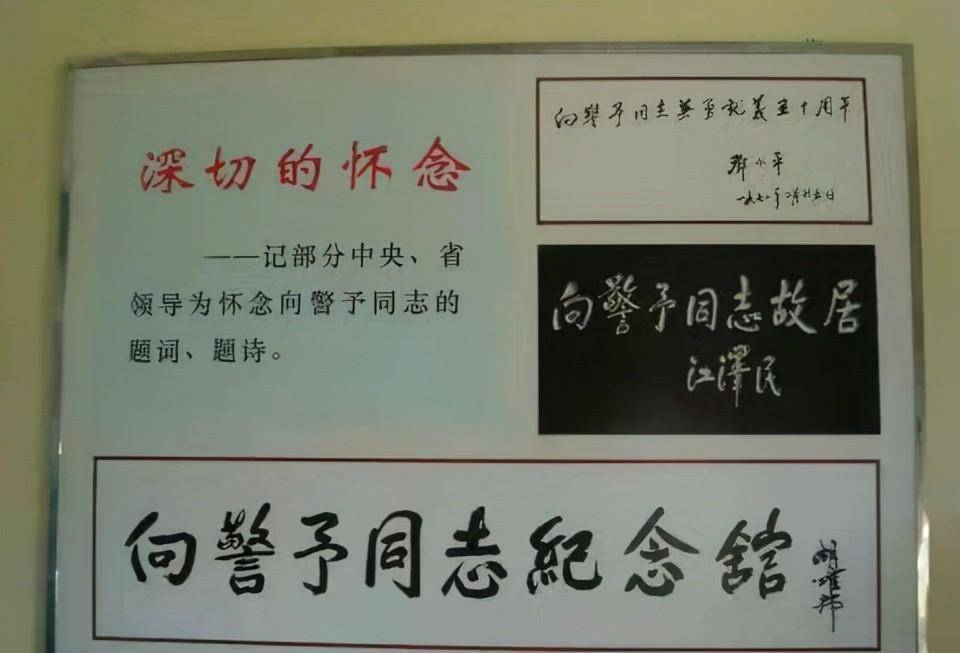 深切的怀念
——记部分中央、省
领导为怀念向警予同志的
题词、题诗。
向警予同志英勇就义五十周年
邓小平
一九七八年二月廿五日
向警予同志故居
江澤民
向警予同志紀念舘
胡耀邦